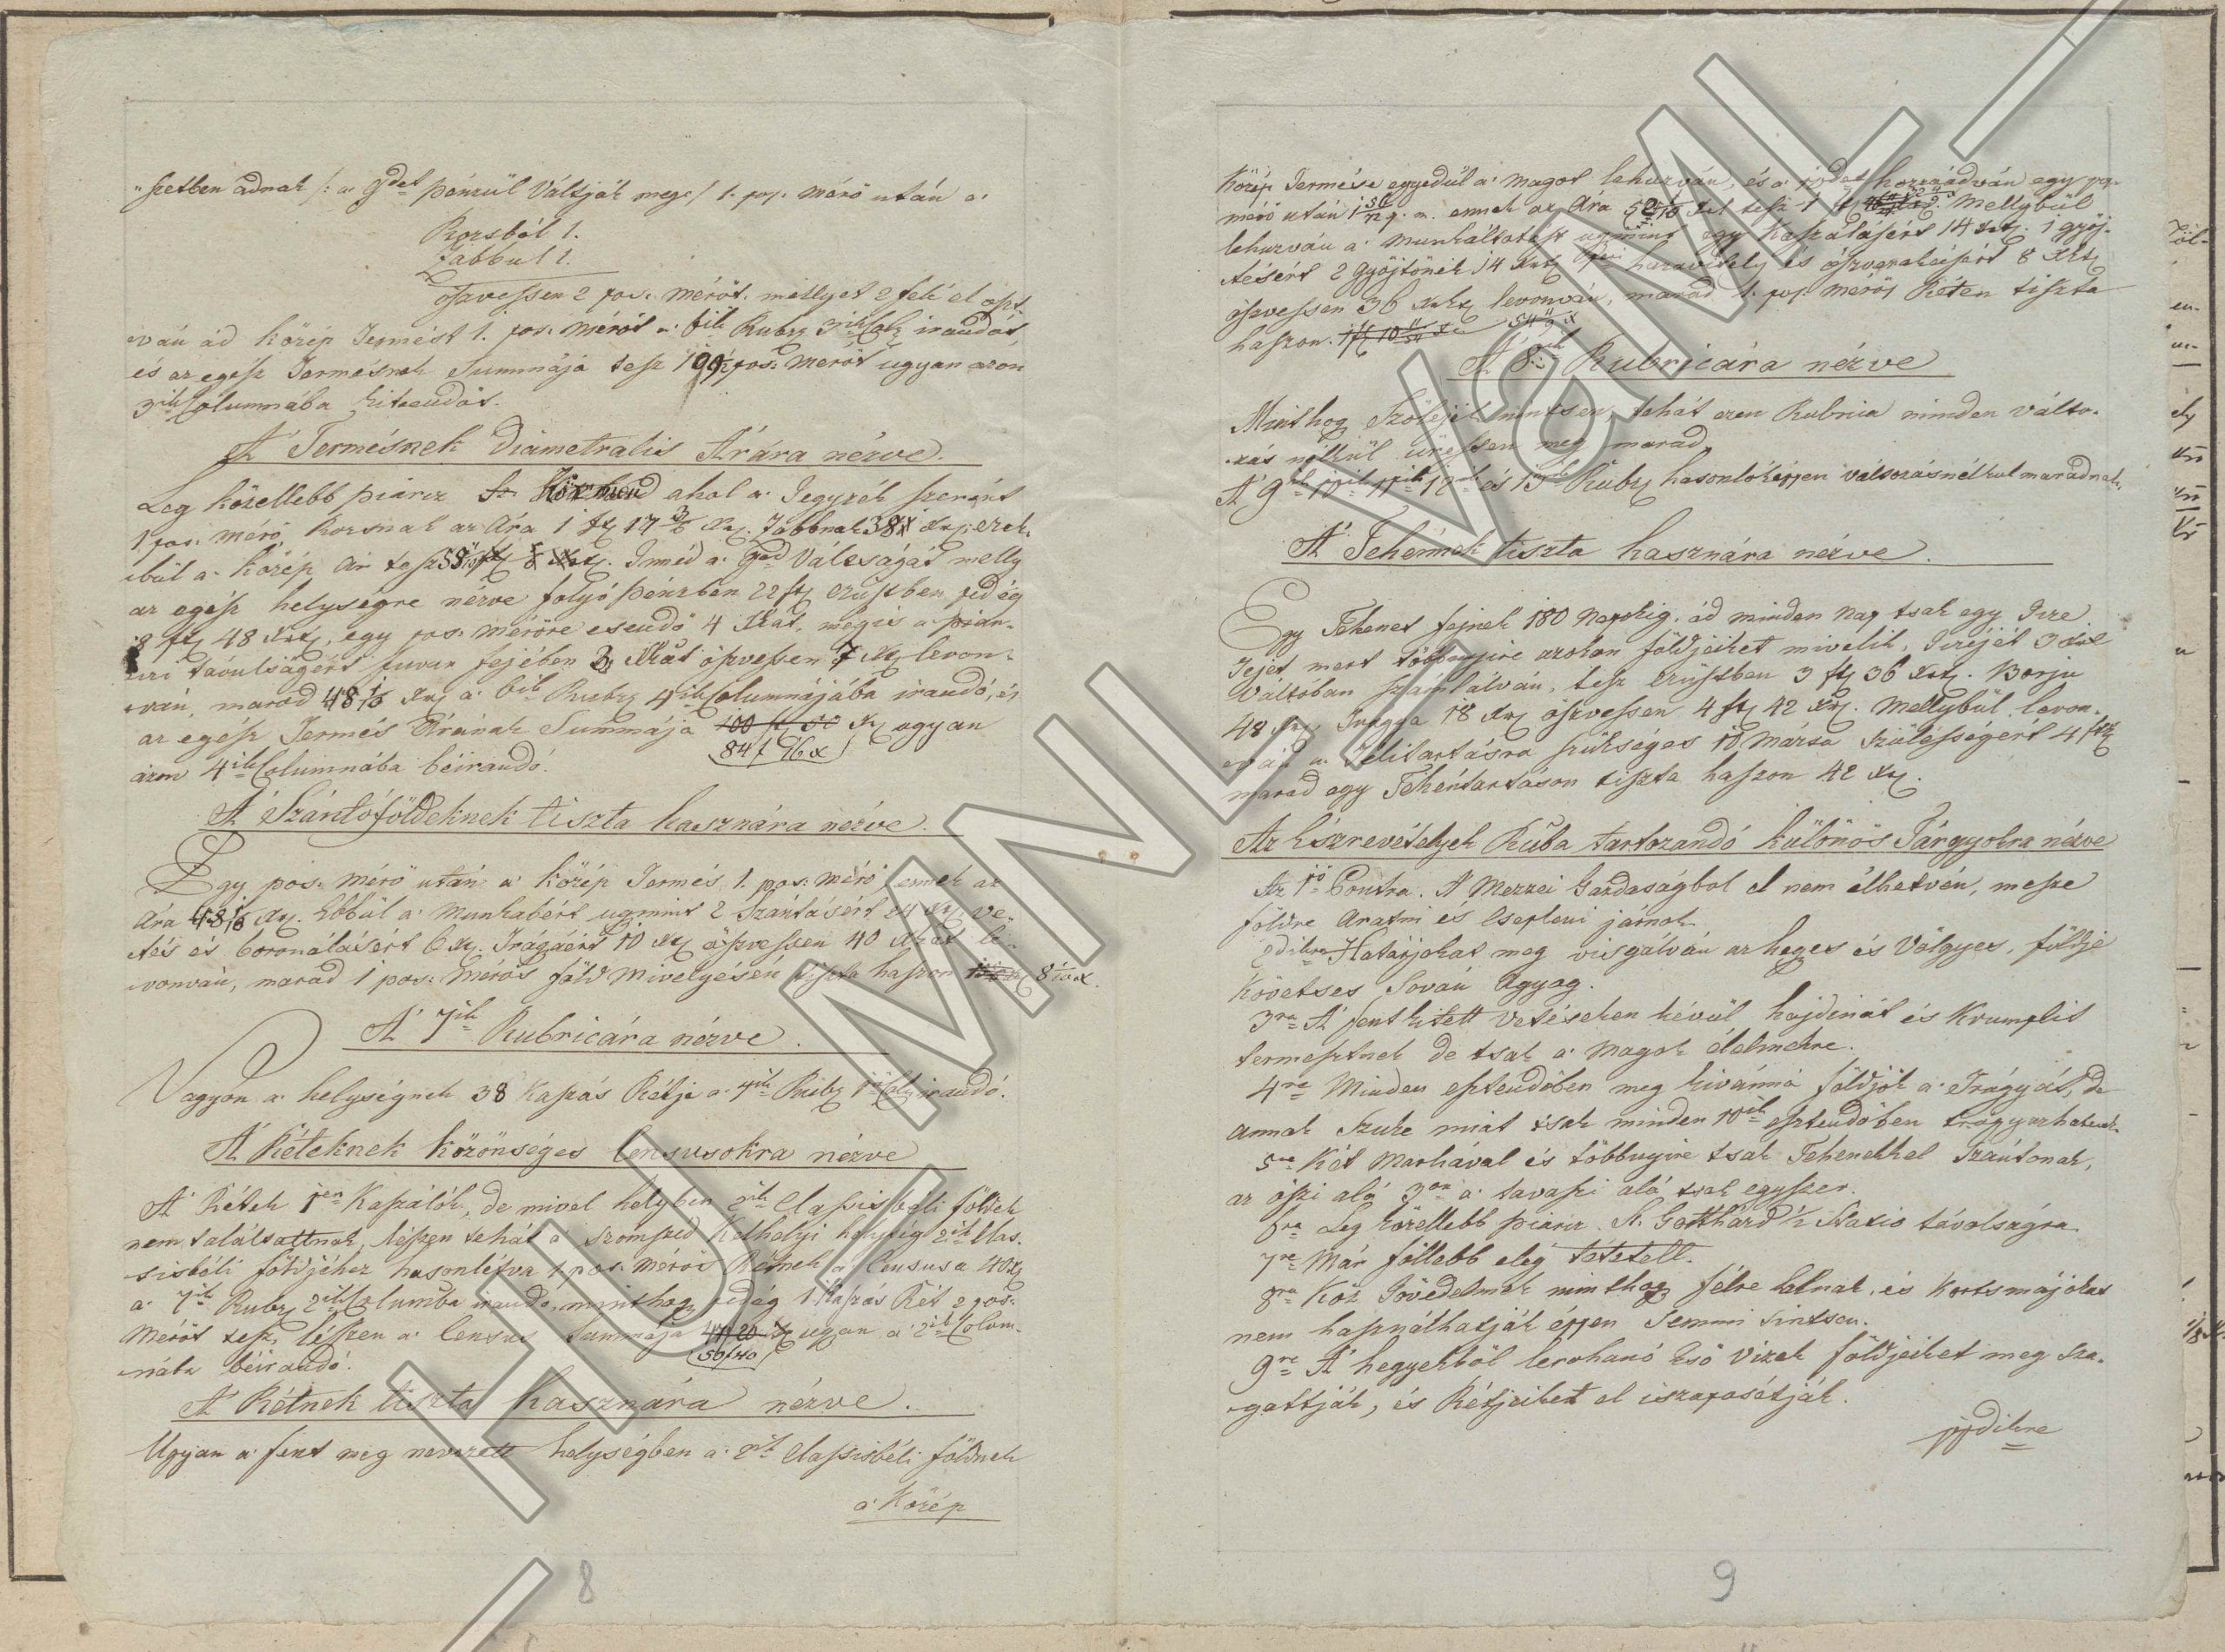 "szetben adnak /: a 9det pénzül Váltják meg :/ 1. pos. mérő után a
Rozsból 1.
Zabbul 1.
öszvessen 2 pos. mérőt. mellyet 2 felé el oszt
ván ád közép Termést 1. pos. mérőt a 6ik Rubr 3ik Col irandót,
és az egész Termésnek Summája tesz pos. mérőt ugyan azon
3ik Columnába kiteendőt.
A' Termésnek Diametralis Árára nézve.
Leg közellebb piárcz ahol a Jegyzék szerént
1 pos. mérő Rozsnak az Ára 1 f 17 Xr. Zabbnak 38 Xr. ezek
bül a közép ár tesz Innéd a 9ed Váltságát melly
az egész helységre nézve folyó pénzben 22 f ezüstben pedég
8 f 48 Xr, egy pos. mérőre esendő 4 Xrát, mégis a pián
czi távulságért fuvar fejében 3 Xrát öszvessen 7 Xr levon
ván, marad 48 Xr a 6ik Rubr 4ik Columnájába irandó, és
az egész Termés Árának Summája Xr ugyan
azon 4ik Columnába béirandó.
84 f 96 x
A' Szántóföldeknek tiszta hasznára nézve.
Egy pos. mérő után a közép Termés 1. pos. mérő, ennek az
Ára 48 Xr. Ebbül a munkabért ugmint 2 Szántásért 24 Xr ve
tés és boronálásért 6 Xr. Trágáért 10 Xr öszvessen 40 Xrát le
vonván, marad 1 pos. mérős föld mivelyésén tiszta haszon 8 x.
A' 7ik Rubricára nézve.
Vagyon a helységnek 38 Kaszás Rétje a 7ik Rubr 1ső Col irandó.
A' Réteknek közönséges Censusokra nézve
A' Rétek 1szer Kaszálók, de mivel helyben 2ik Classisbéli földek
nem találtattnak, lészen tehát a Szomszéd Kethelyi helység 2ik Clas
sisbéli földjéhez hasonlétva 1 pos. mérős Rétnek a Censusa 40 Xr
a 7ik Rubr 2ik Columba irandó, minthog pedég 1 Kaszás Rét 2 pos.
mérőt tesz, lészen a Census Summája ugyan a 2ik Colum
nába béirandó.
50 f 40
A' Rétnek tiszta hasznára nézve.
Ugyan a fent meg nevezett helységben a 2ik Classisbéli földnek
a Közép
8
Közép Termése egyedül a magot lehuzván, és a hozzáádván egy pos.
mérő után ennek az Ára tesz 1 f mellybül
lehuzván a munkáltatást ugmint egy Kaszálásért 14 Xr. 1 gyöj
tésért 2 Gyöjtőnek 14 Xr hazavitely és öszverakásért 8 Xr
öszvessen 36 Xr levonván, marad 1. pos. mérős Réten tiszta
haszon.
A' 8ik Rubricára nézve
Minthog Szőlejék nintsen, tehát ezen Rubrica minden válto
zás nélkül üressen meg marad.
A' 9ik 10ik 11ik 12ik és 13ik Rubr hasonlóképpen változásnélkul maradnak.
A' Tehénnek tiszta hasznára nézve.
Egy Tehenet fejnek 180 Napokig. ád minden nap tsak egy Icze
Tejet mert többnyire azokon földjeiket mivelik, Iczéjét 3 Xral
Váltóban számlálván, tesz ezüstben 3 f 36 Xr. Borju
48 Xr. Trágya 18 Xr öszvessen 4 f 42 Xr. Mellybül levon
ván a télitartásra szükséges 10 mázsa Szálésségért 4 f
marad egy Tehéntartáson tiszta haszon 42 Xr.
Az Észrevételyek Rúba tartozandó különös Tárgyokra nézve
Az 1ső Pontra. A' Mezzei Gazdaságbol el nem élhetvén, messze
földre Aratni és Csepleni járnak.
2dikra Határjokat meg visgálván az heges és Völgyes, földje
Követses Sován Agyag.
3ra A' fent kitett Vetéseken kévül hajdinát és Krumplit
termesztnek de tsak a magok élelmekre.
4re Minden esztendőben meg kivánná földjök a Trágyát, de
annak Szuke miat tsak minden 10ik esztendőben trágyazhatnak.
5re Két Marhával és többnyire tsak Tehenekkel Szántanak,
az öszi alá 3or a tavaszi alá tsak egyszer.
6ra Leg közellebb piárcz St. Gotthárd 1/2 Statio távolságra.
7re Már föllebb elég tétetett.
8ra Köz Jövedelmek minthog félre helnak, és Kortsmájokat
nem használhatják éppen Semmi sintsen.
9re A' hegyekből lerohanó Eső Vizek földjeiket meg Sza
gattják, és Rétjeiket el iszaposétják.
10dikre
9
HU MNL VaML